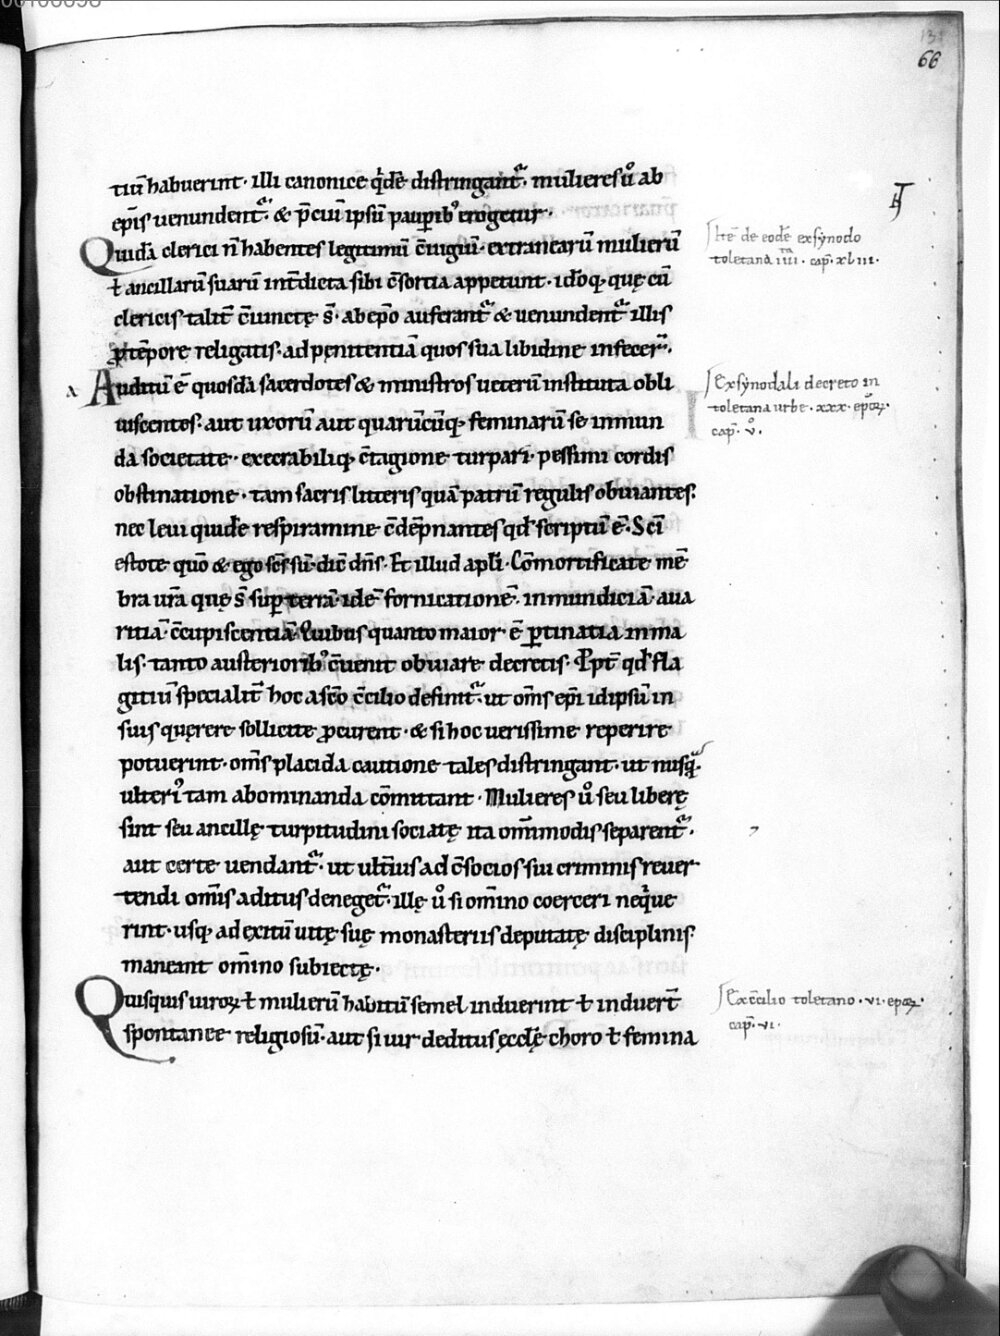 66
tiũ habuerint· illi canonice q̓dẽ distringant᷑· mulieres ů ab
ep̃is uenundent᷑· & p̃ciũ ipsũ paup̱ib᷒ erogetur·
Quidã clerici ñ habentes legitimũ c̃iugiũ· extranearũ mulierũ
ł ancillarũ suarũ int̃dicta sibi c̃sortia appetunt· idõq· quę cũ
clericis talit̃ c̃iunctę s̃· ab ep̃o auferant᷑ & uenundent᷑ illis
ꝓ tẽpore religatis· ad pęnitentiã quos sua libidine infecer̃·
Auditũ ẽ quosdã sacerdotes & ministros ueterũ instituta obli
uiscentes· aut uxorũ aut quarũcũq· feminarũ se inmun
da societate· execrabiliq· c̃tagione turpari· pessimi cordis
obstinatione· tam sacris litteris quã patrũ regulis obuiantes·
nec leui quidẽ respiramine c̃dẽpnantes qđ scriptũ ẽ· Sc̃i
estote quõ & ego sc̃s sũ· dic̃ dñs· Et illud apłi· Cõmortificate mẽ
bra ur̃a quę s̃ sup̱ terrã· idẽ fornicationẽ· inmundiciã· aua
ritiã· c̃cupiscentiã· Quibus quanto maior ẽ p̱tinatia in ma
lis· tanto austeriorib᷒ c̃uenit obuiare decretis· Ꝓpt̃ qđ fla
gitiũ specialit̃ hoc a sc̃o c̃cilio definit᷑· ut om̃s ep̃i id ipsũ in
suis quęrere sollicite ꝓcurent· & si hoc uerissime reperire
potuerint· om̃s placida cautione tales distringant· ut nusq̃·
ulteri᷒ tam abominanda cõmittant· Mulieres ů seu liberę
sint seu ancillę turpitudini sociatę ita om̃imodis separent᷑·
aut certe uendant᷑· ut ult̃ius ad c̃socios sui criminis reuer
tendi om̃is aditus deneget᷑· illę ů si om̃ino coerceri neq̓ue
rint· usq· ad exitũ uitę suę monasteriis deputatę disciplinis
maneant om̃ino subiectę·
Quisquis uiroꝝ ł mulierũ habitũ semel induerint ł induer̃t
spontanee religiosũ· aut si uir deditus ęcclę choro ł femina
Itẽ de eodẽ ex sẏnodo
toletana iiii· cap̃· xliii·
Ex sẏnodali decreto in
toletana urbe· xxx· ep̃oꝝ·
cap̃· v̊·
Ex c̃cilio toletano· vi· ep̃oꝝ·
cap̃· vi·